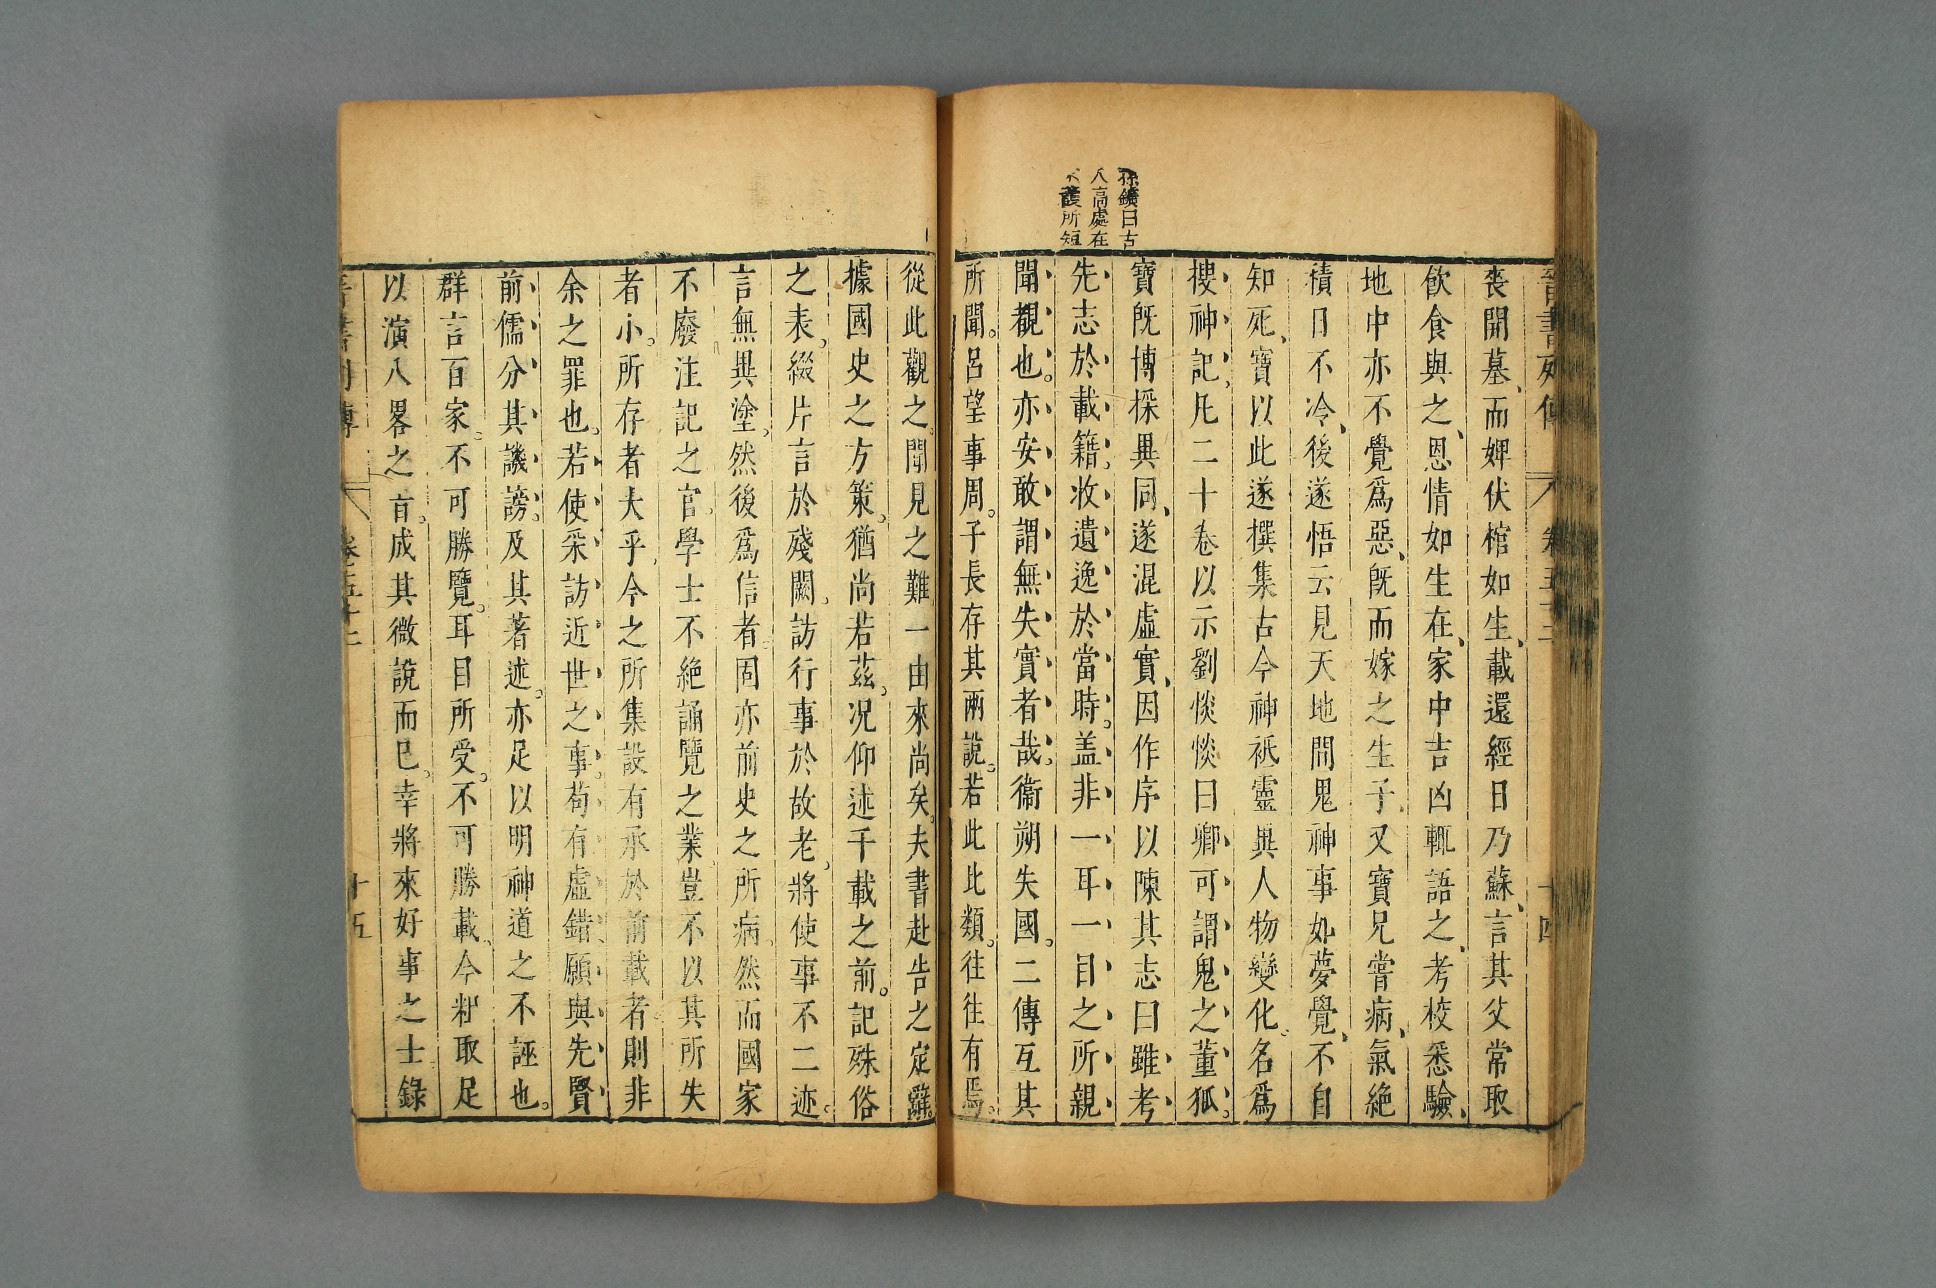 晉書列傳 卷五十二 十四
喪開墓、而婢伏棺如生、載還經日乃蘇、言其父常取
飲食與之、恩情如生在、家中吉凶輒語之、考校悉驗、
地中亦不覺爲惡、旣而嫁之生子、又寶兄嘗病、氣絶
積日不冷、後遂悟云見天地間鬼神事如夢覺、不自
知死、寶以此遂撰集古今神祗靈異人物變化、名爲
搜神記、凡二十卷以示劉惔惔曰卿可謂鬼之董狐。
寶旣博採異同、遂混虛實、因作序以陳其志曰雖考
先志於載籍、收遺逸於當時。盖非一耳一目之所親
聞覩也。亦安敢謂無失實者哉。衞朔失國。二傳互其
所聞。呂望事周。子長存其兩說。若此比類。往往有焉。
孫鑛曰古
人高處在
不護所短
從此觀之。聞見之難一由來尚矣。夫書赴告之定辭。
據國史之方策。猶尚若茲。况仰述千載之前。記殊俗
之表。綴片言於殘闕。訪行事於故老。將使事不二迹。
言無異塗。然後爲信者。固亦前史之所病。然而國家
不廢注記之官。學士不絶誦覽之業。豈不以其所失
者小。所存者大乎。今之所集設有承於前載者則非
余之罪也。若使采訪近世之事。苟有虛錯願與先賢
前儒分其譏謗。及其著述。亦足以明神道之不誣也。
群言百家。不可勝覽。耳目所受。不可勝載。今粗取足
以演八畧之㫖。成其微說而已。幸將來好事之士錄
晉書列傳 卷五十二 十五